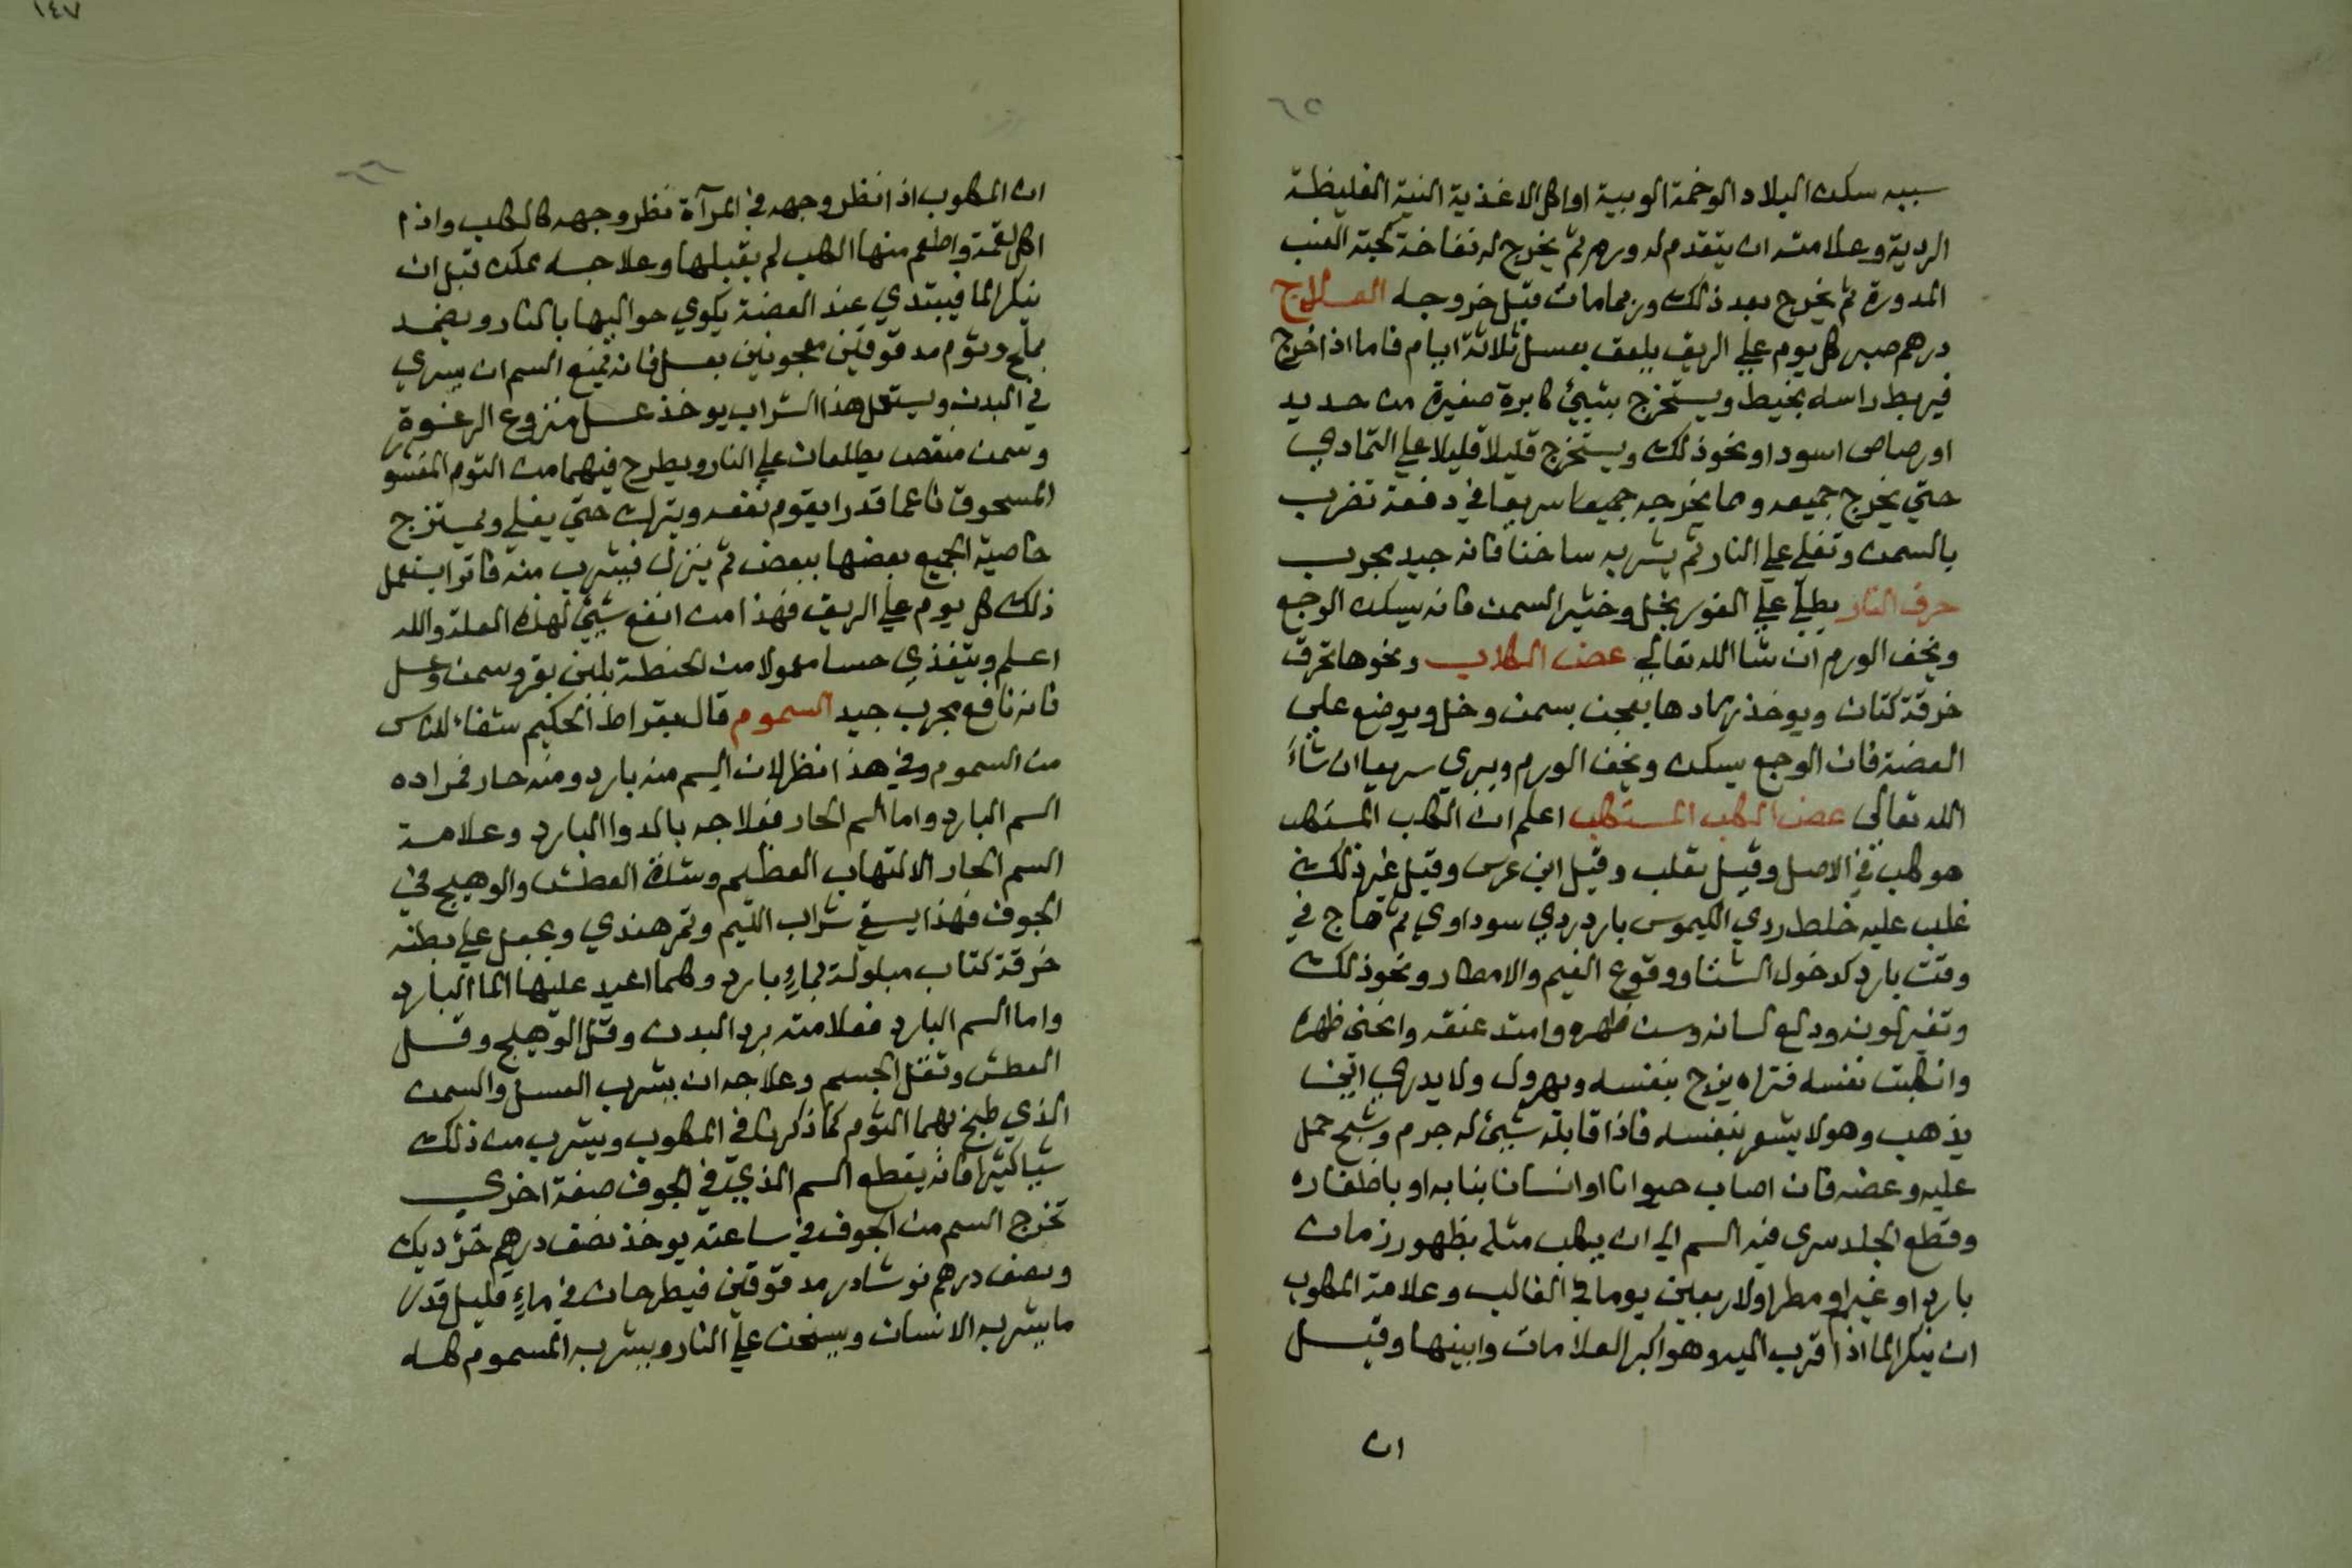 ٦٥
سببه سكن البلاد الوخمة الوبية او اكل الاغذية النية الغليظة
الردية وعلامته ان يتقدم له ورم ثم يخرج له نفاخة كحبة العنب
المدورة ثم يخرج بعد ذلك وربما مات قبل خروجه العلاج
درهم صبر كل يوم علي الريق يلعق بعسل ثلاثة ايام فاما اذا خرج
فيربط راسه بخيط ويستخرج بشيئ كابرة صغيرة من حديد
او رصاص اسود او نحو ذلك ويستخرج قليلا قليلا علي التمادي
حتي يخرج جميعه وما يخرجه جميعا سريعا في دفعة تضرب
بالسمن وتغلي علي النار ثم يشربه ساخنا فانه جيد مجرب
حرق النار يطلي علي الفور بخل وخثير السمن فانه يسكن الوجع
ويخف الورم ان شا الله تعالي عض الكلاب ونحوها تحرق
خرقة كتان ويوخذ رمادها يعجن بسمن وخل ويوضع علي
العضة فان الوجع يسكن ويخف الورم ويبري سريعا ان شاء
الله تعالى عض الكلب المستكلب اعلم ان الكلب المستكلب
هو كلب في الاصل وقيل ثعلب وقيل ابن عرس وقيل غير ذلك
غلب عليه خلط ردي الكيموس بارد ردي سوداوي ثم هاج في
وقت بارد كدخول الشتا ووقوع الغيم والامطار ونحو ذلك
وتغير لونه ودلع لسانه وامتد عنقه وانحنى ظهره
وانكلبت نفسه فتراه يفرح بنفسه ويهرول ولا يدري اين
يذهب وهو لا يشعر بنفسه فاذا قابله شيئ له جرم وشبح حمل
عليه وعضه فان اصاب حيوانا او انسانا بنابه او باظفاره
وقطع الجلد سرى فيه السم الي ان يكلب مثله بظهور زمان
بارد او غيم او مطر اولا ربعين يوما في الغالب وعلامة المكلوب
ان ينكر الما اذا قرب اليه وهو اكبر العلامات وابينها وقيل
ان
١٤٧
٦٦
ان المكلوب اذا نظر وجهه في المرآة نظر وجهه كالكلب واذا
اكل لقمة واطعم منها الكلب لم يقبلها وعلاجه يمكن قبل ان
ينكر الما فيبتدي عند العضة يكوي حواليها بالنار ويضمد
بملح وثوم مدقوقين معجونين بعسل فانه يمنع السم ان يسري
في البدن ويستعمل هذا الشراب يوخذ عسل منزوع الرغوة
وسمن يطلعان علي النار ويطرح فيهما من الثوم المقشور
المسحوق ناعما قدرا يقوم نفعه ويترك حتي يغلي ويمتزج
خاصية الجميع بعضها ببعض ثم ينزل فيشرب منه فاترا يستعمل
ذلك كل يوم علي الريق فهذا من انفع شيئ لهذه العلة والله
اعلم ويتغذي حسا معمولا من الحنطة بلبن بقر وسمن وعسل
فانه نافع مجرب جيد السموم قال بقراط الحكيم شفاء للناس
من السموم وفي هذا نظر لان السم منه بارد ومنه حار فمراده
السم البارد واما السم الحار فعلاجه بالدوا البارد وعلامة
السم الحار الالتهاب العظيم وشدة العطش والوهيج في
الجوف فهذا يسقي شراب الليم وتمر هندي ويجعل علي بطنه
خرقة كتاب مبلولة بماءٍ بارد وكلما اعيد عليها الما البارد
واما السم البارد فعلامته برد البدن وقل الوهيج وقل
العطش وثقل الجسم وعلاجه ان يشرب العسل والسمن
الذي طبخ بهما الثوم كما ذكرنا في المكلوب ويشرب من ذلك
شيا كثيرا فانه يقطع السم الذي في الجوف صفة اخرى
تخرج السم من الجوف في ساعته يوخذ نصف درهم خرو ديك
ونصف درهم نوشادر مدقوقين فيطرحان في ماءٍ قليل قدر
ما يشربه الانسان ويسخن علي النار ويشربه المسموم كله